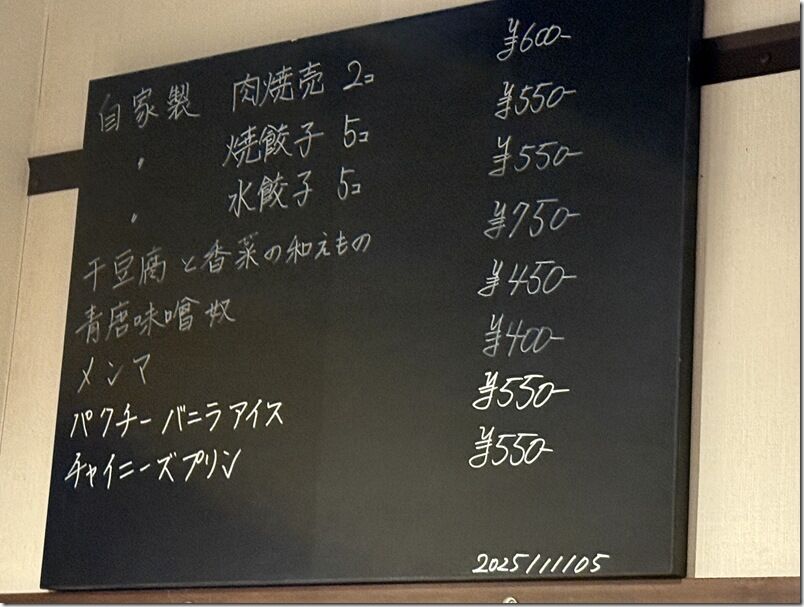 自家製 肉焼売 2コ ¥600-
〃 焼餃子 5コ ¥550-
〃 水餃子 5コ ¥550-
干豆腐と香菜の和えもの ¥750-
青唐味噌奴 ¥450-
メンマ ¥400-
パクチーバニラアイス ¥550-
チャイニーズプリン ¥550-
2025/11/05